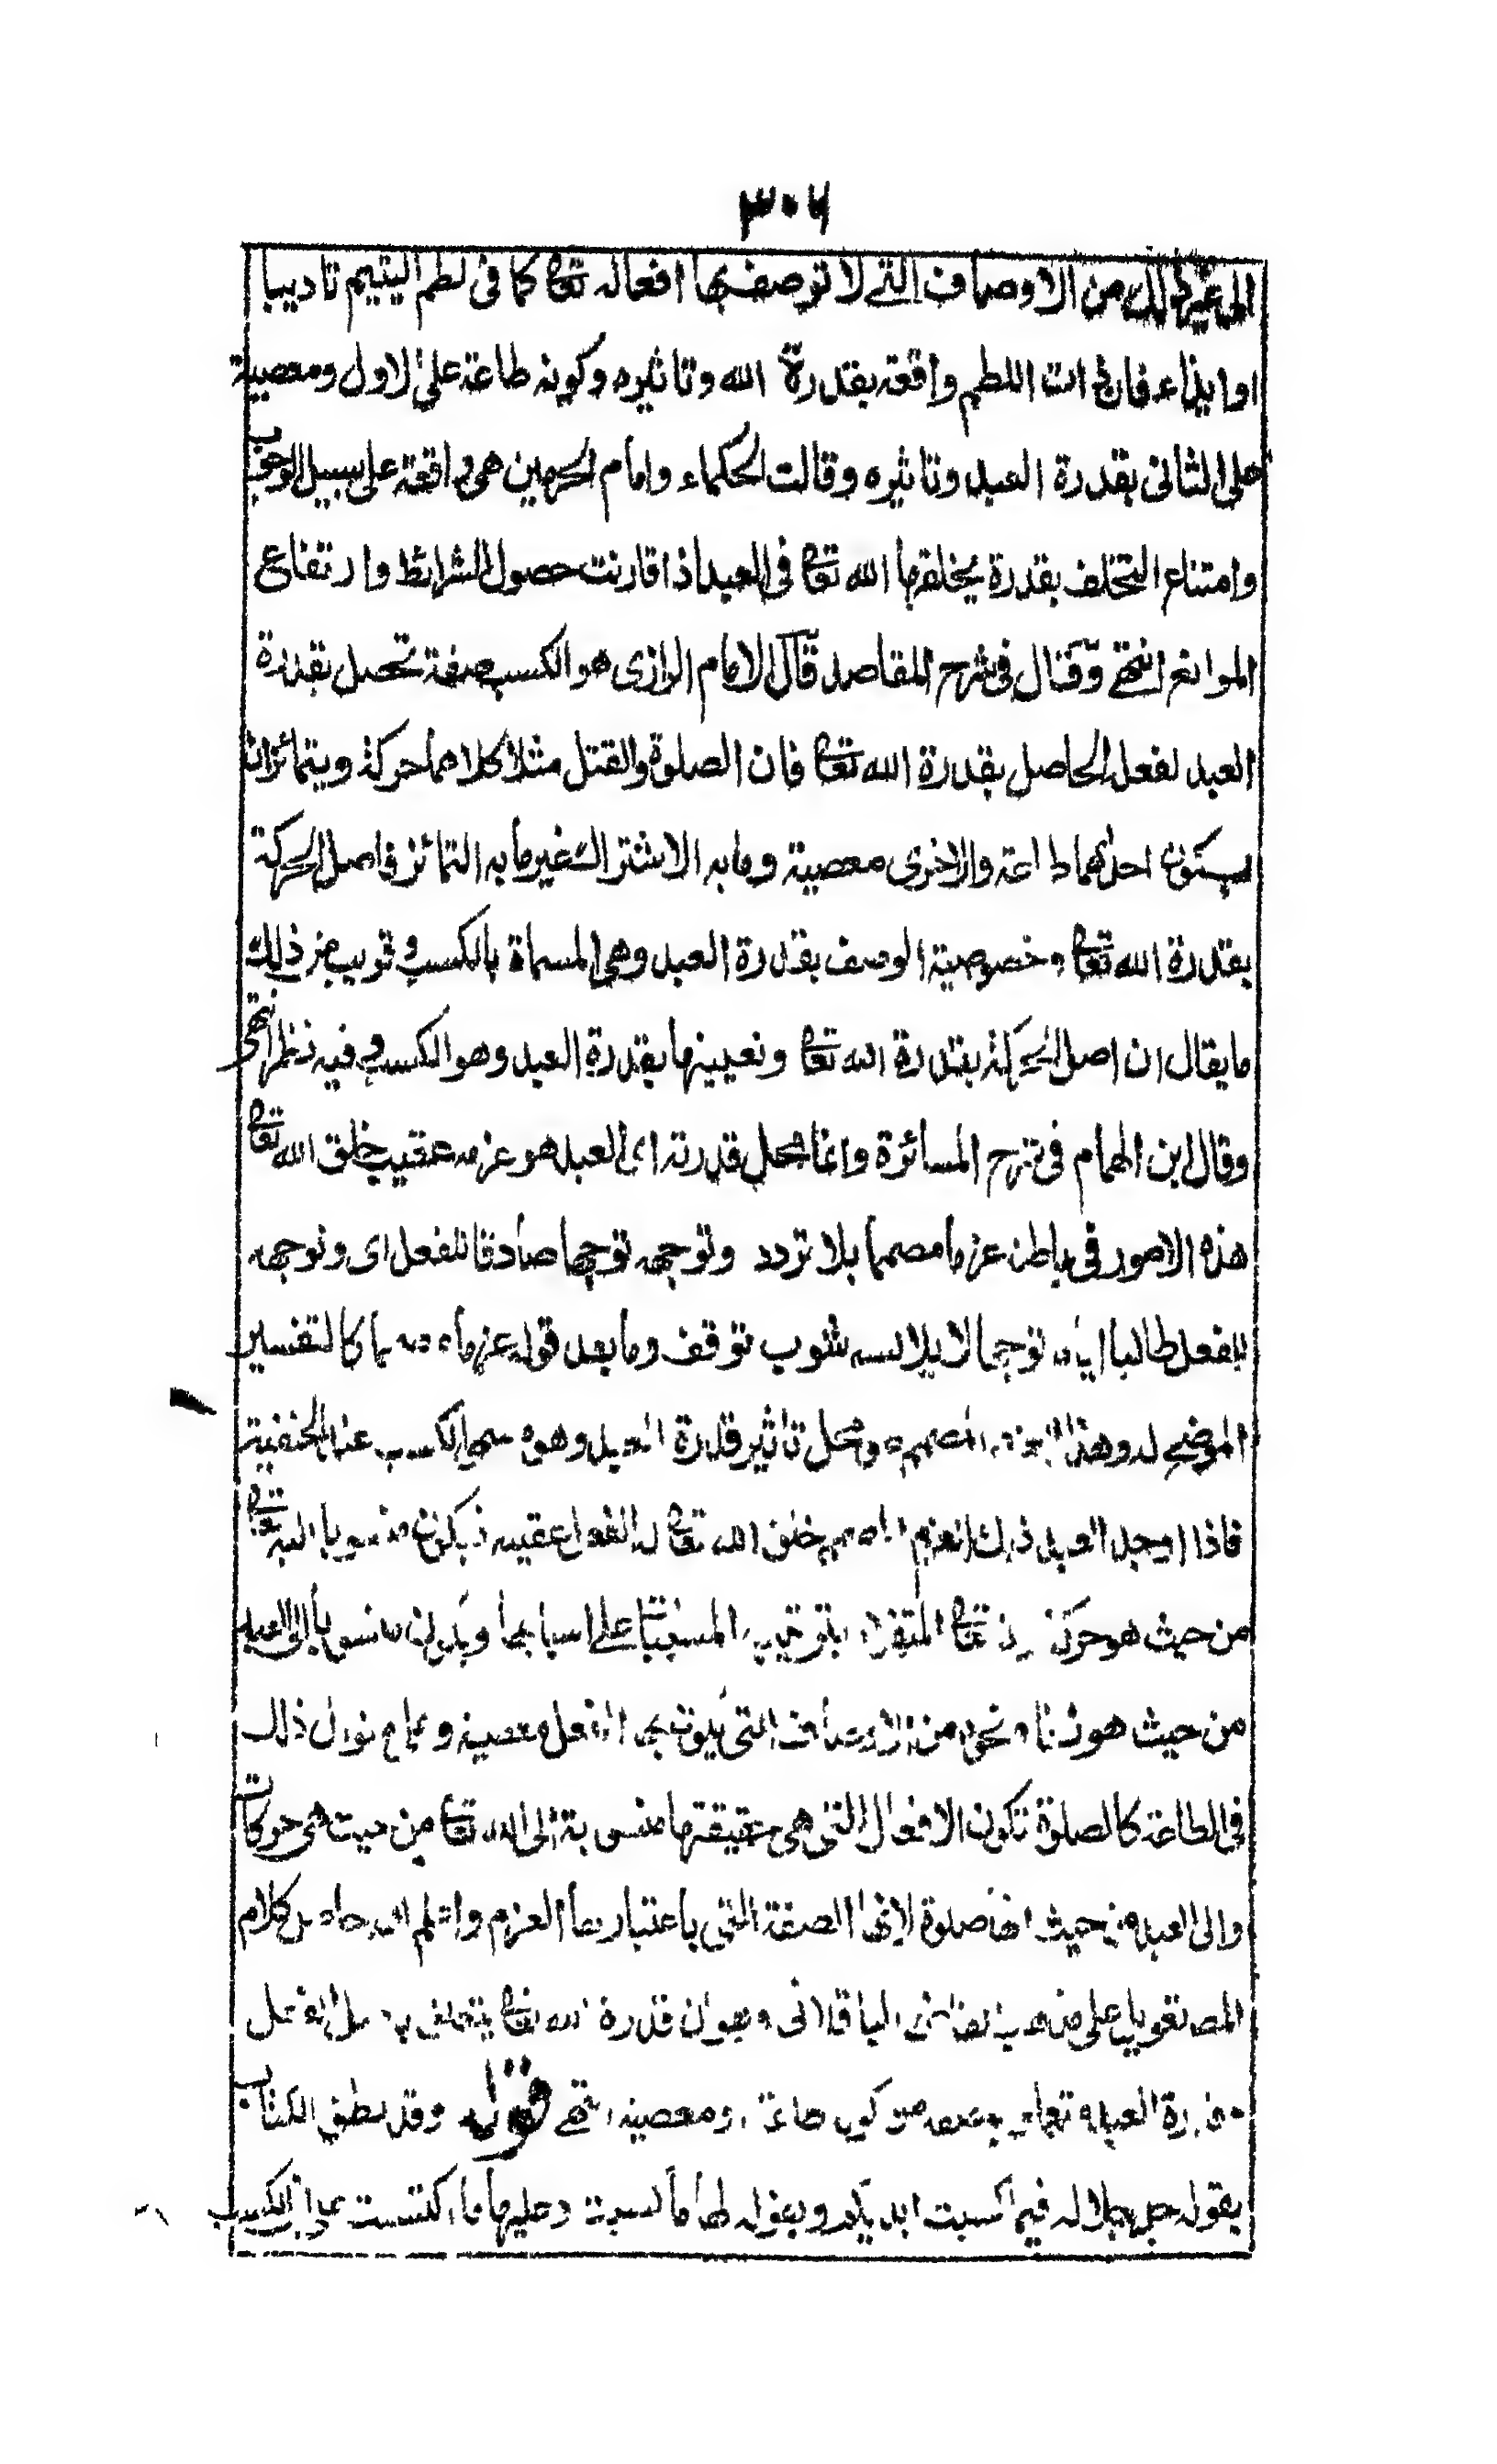 ٣٠٦
الى غير ذلك من الاوصاف التے لا توصف بها افعاله تعالى كما فى لطم اليتيم تاديبا
او ايذاء فان ذات اللطم واقعة بقدرة الله وتاثيره وكونه طاعة على الاول ومعصية
على الثانى بقدرة العبد وتاثيره وقالت الحكماء وامام الحرمين هى واقعة على سبيل الوجوب
وامتناع التخلف بقدرة يخلقها الله تعالى فى العبد اذا قارنت حصول الشرائط وارتفاع
الموانع انتهے وقال فى شرح المقاصد قال الامام الرازى هو الكسب صفة تحصل بقدرة
العبد لفعل الحاصل بقدرة الله تعالى فان الصلوة والقتل مثلا كلاهما حركة ويتمائزان
بكون احدهما طاعة والاخرى معصية وما به الاشتراك غير ما به التمائز فاصل الحركة
بقدرة الله تعالى وخصوصية الوصف بقدرة العبد وهى المسماة بالكسب وقريب من ذلك
ما يقال ان اصل الحركة بقدرة الله تعالى وتعيينها بقدرة العبد وهو الكسب وفيه نظر انتهى
وقال ابن الهمام فى شرح المسائرة وانما محل قدرته اى العبد هو عزمه عقيب خلق الله تعالى
هذه الامور فى باطنه عزما مصمما بلا تردد وتوجهه توجها صادقا للفعل اى وتوجهه
للفعل طالبا اياه توجها لا يلابسه شوب توقف وما بعد قوله عزما مصمما كالتفسير
الموضح له وهذا العزم المصمم هو محل تاثير قدرة العبد وهو مسمى الكسب عند الحنفية
فاذا اوجد العبد ذلك العزم المصمم خلق الله تعالى له الفعل عقيبه فيكون منسوبا اليه تعالى
من حيث هو حركة لانه تعالى المتفرد بترتيب المسببات على اسبابها ويكون منسوبا الى العبد
من حيث هو زنا ونحوه من الاوصاف التى يكون بها الفعل معصية وعلى منوال ذلك
فى الطاعة كالصلوة تكون الافعال التى هى حقيقتها منسوبة الى الله تعالى من حيث هى حركات
والى العبد من حيث انها صلوة لانها الصفة التى باعتبارها العزم واعلم ان حاصل كلام
المصـ تعويل على مذهب القاضى الباقلانى وهو ان قدرة الله تعالى يتعلق باصل الفعل
وقدرة العبد تتعلق بوصفه من كونه طاعة ومعصية انتهے قوله وقد نطق الكتاب
بقوله جل جلاله فيما كسبت ايديكم وبقوله لها ما كسبت وعليها ما اكتسبت على ان الكسب